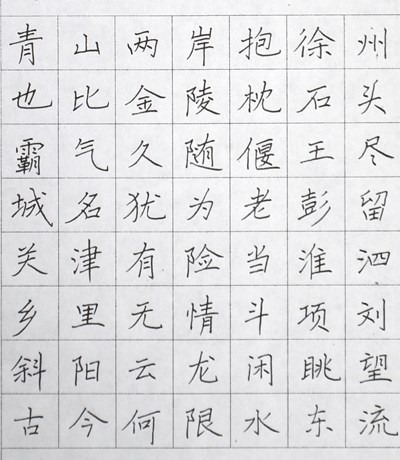 青山两岸抱徐州
也比金陵枕石头
霸气久随偃王尽
城名犹为老彭留
关津有险当淮泗
乡里无情斗项刘
斜阳云龙闲眺望
古今何限水东流